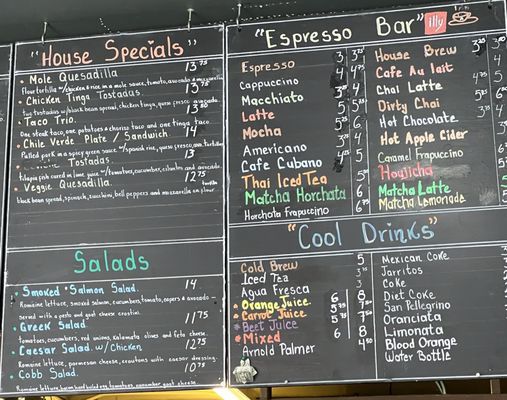 "House Specials"
• Mole Quesadilla 13.75
Flour tortilla w/chicken & rice in a mole sauce, tomato, avocado & mozzarella
• Chicken Tinga Tostadas. 13.75
two tostadas w/black bean spread, chicken tinga, queso fresco, avocado
• Taco Trio. 13.50
One steak taco, one potatoes & chorizo taco and one tinga taco.
• Chile Verde Plate / Sandwich 14
Pulled pork in a spicy green sauce w/Spanish rice, queso fresco, tortilla
Tostadas. 13
tilapia fish cured in lime juice w/tomatoes, cucumber, cilantro and avocado
• Veggie Quesadilla. 12.75
black bean spread, spinach, zucchini, bell peppers and mozzarella on flour tortilla
Salads
• Smoked Salmon Salad. 14.
Romaine lettuce, smoked salmon, cucumbers, tomato, capers & avocado
served with a pesto and goat cheese crostini.
• Greek Salad 11.75
Tomatoes, cucumbers, red onions, kalamata olives and feta cheese.
• Caesar Salad. w/ Chicken 12.75
Romaine lettuce, parmesan cheese, croutons with caesar dressing.
• Cobb Salad. 10.75
Romaine lettuce, bacon, hard boiled egg, tomatoes, cucumber goat cheese.
"Espresso Bar" illy
Espresso 3 3.25
Cappuccino 4 4.75
Macchiato 3.50 4
Latte 5 5.50
Mocha 5.25 6
Americano 3 4
Cafe Cubano 3.50 4
Thai Iced Tea 4.25 5
Matcha Horchata 6
Horchata Frapuccino 6.75
House Brew 3.25 3.50
Cafe Au lait 4
Chai Latte 4.75
Dirty Chai 5
Hot Chocolate 3.75
Hot Apple Cider
Caramel Frapuccino
Houjicha
Matcha Latte
Matcha Lemonade
"Cool Drinks"
Cold Brew 5
Iced Tea 3.75
Aqua Fresca 3
* Orange Juice 6 8
* Carrot Juice 5.75 7
* Beet Juice 5.75 7
* Mixed 6 8
Arnold Palmer 4.50
Mexican Coke
Jarritos
Coke
Diet Coke
San Pellegrino
Oranciata
Limonata
Blood Orange
Water Bottle